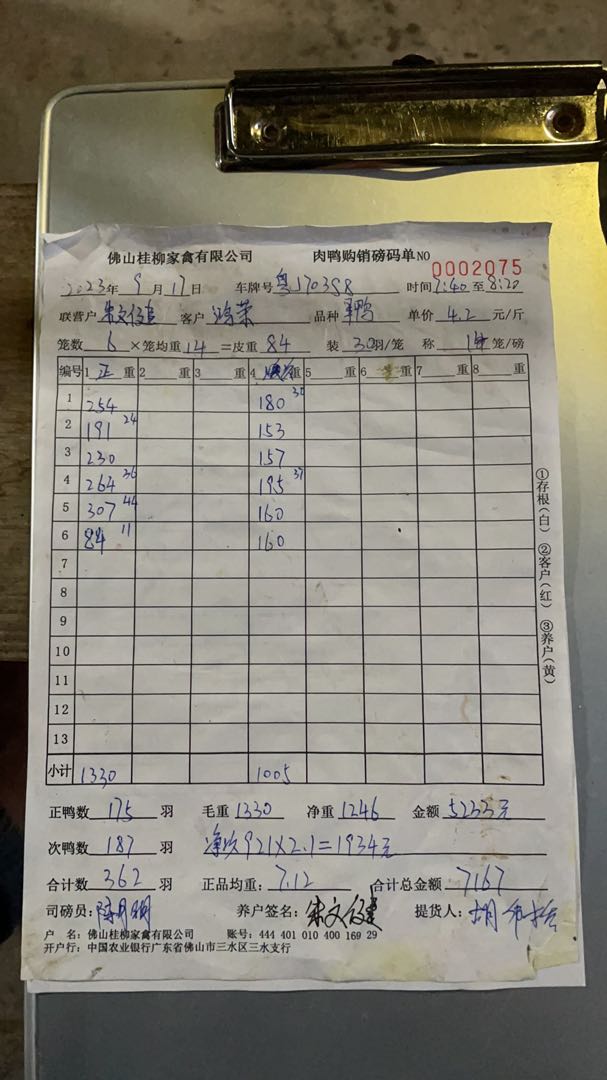 佛山桂柳家禽有限公司 肉鸭购销磅码单NO 0002075
2023年 9 月 17 日 车牌号 粤J70398 时间 7:40 至 8:20
联营户 朱文俊 客户 鸿荣 品种 鸭 单价 4.2 元/斤
笼数 6 ×笼均重 14 =皮重 84 装 30 羽/笼 称 笼/磅
编号 1 正 重 2 重 3 重 4 重 5 重 6 重 7 重 8 重
1 254 180 30
2 191 24 153
3 230 157
4 264 36 195 37
5 307 44 160
6 84 11 160
7
8
9
10
11
12
13
小计 1330 1005
正鸭数 175 羽 毛重 1330 净重 1246 金额 5233元
次鸭数 187 羽 净次921×2.1=1934元
合计数 362 羽 正品均重: 7.12 合计总金额 7167
司磅员: 陈月明 养户签名: 朱文俊 提货人:
户 名: 佛山桂柳家禽有限公司 账号: 444 401 010 400 169 29
开户行: 中国农业银行广东省佛山市三水区三水支行
①存根(白) ②客户(红) ③养户(黄)